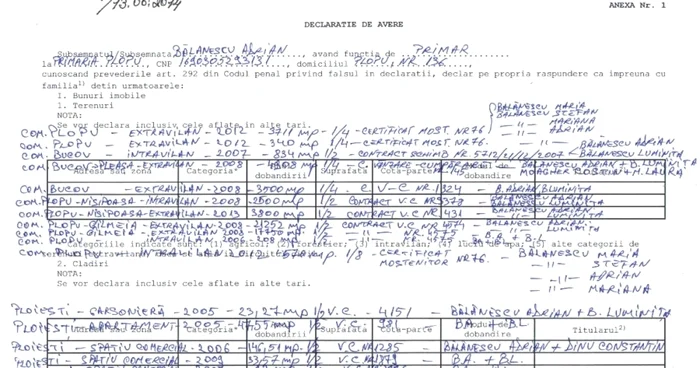 /13.06.2014
ANEXA Nr. 1
DECLARATIE DE AVERE
Subsemnatul/Subsemnata, BĂLĂNESCU ADRIAN, avand functia de PRIMAR
la PRIMARIA PLOPU, CNP, domiciliul PLOPU, NR. 136,
cunoscand prevederile art. 292 din Codul penal privind falsul in declaratii, declar pe propria raspundere ca impreuna cu
familia1) detin urmatoarele:
1. Bunuri imobile
1. Terenuri
NOTA:
Se vor declara inclusiv cele aflate in alte tari.
BĂLĂNESCU MARIA
BĂLĂNESCU STEFAN
-"- MARIANA
-"- ADRIAN
COM. PLOPU - EXTRAVILAN - 2012 - 3711 mp - 1/4 - CERTIFICAT MOST. NR 76
COM. PLOPU - EXTRAVILAN - 2012 - 340 mp - 1/4 - CERTIFICAT MOST. NR 76. -"-
COM. BUCOV - INTRAVILAN - 2007 - 834 mp - 1/2 CONTRACT SCHIMB NR 5712/ 2007 - BĂLĂNESCU ADRIAN BĂLĂNESCU LUMINITA
COM. BUCOV-PLEASA-EXTRAVILAN - 2008 - mp - 1/4 - C. VANZARE-CUMPARARE BĂLĂNESCU ADRIAN + B. LUMINITA
Adresa sau zona Categoria* dobandirii Suprafata Cota-parte dobandire
COM. BUCOV - EXTRAVILAN - 2008 - 3900 mp 1/4 . C V-C NR. 1324 - B. ADRIAN/B LUMINITA
COM. PLOPU - NISIPOASA - INTRAVILAN - 2008 - mp 1/2 CONTRACT V.C NR 3378 - BĂLĂNESCU ADRIAN BĂLĂNESCU LUMINITA
COM. PLOPU - NISIPOASA - EXTRAVILAN - 2013 3800 mp 1/2 CONTRACT V.C NR 431 - BĂLĂNESCU ADRIAN -"- LUMINITA
COM. PLOPU - GÎLMEIA - EXTRAVILAN - 2008 - 21252 mp - 1/2 CONTRACT V.C. NR
COM. PLOPU - GÎLMEIA - EXTRAVILAN - 2008 - mp 1/2
COM. PLOPU INTRAVILAN 2008 mp B.A. + B.L.
* Categoriile indicate sunt: (1) agricol; (2) forestier; (3) intravilan; (4) luciu de apa; (5) alte categorii de
COM. PLOPU - INTRAVILAN - 2012 mp - 1/8 - CERTIFICAT MOSTENITOR NR 76. BĂLĂNESCU MARIA
2. Cladiri -"- STEFAN
NOTA: -"- ADRIAN
Se vor declara inclusiv cele aflate in alte tari. -"- MARIANA
PLOIESTI - GARSONIERĂ - 2005 - 23,27 mp 1/2 V.C. - 4151 - BĂLĂNESCU ADRIAN + B. LUMINITA
PLOIESTI - APARTAMENT - 2005 - 47,55 mp 1/2 V.C. 981 B.A. + B.L.
Adresa sau zona Categoria* dobandirii Suprafata Cota-parte dobandire Titularul2)
PLOIESTI - SPATIU COMERCIAL - 2006 - 146,51 mp. 1/2 V.C NR 1285 - BĂLĂNESCU ADRIAN + DINU CONSTANTIN
PLOIESTI - SPATIU COMERCIAL - 2009 33,57 mp 1/2 V.C NR 1879 - B.A. + B.L.